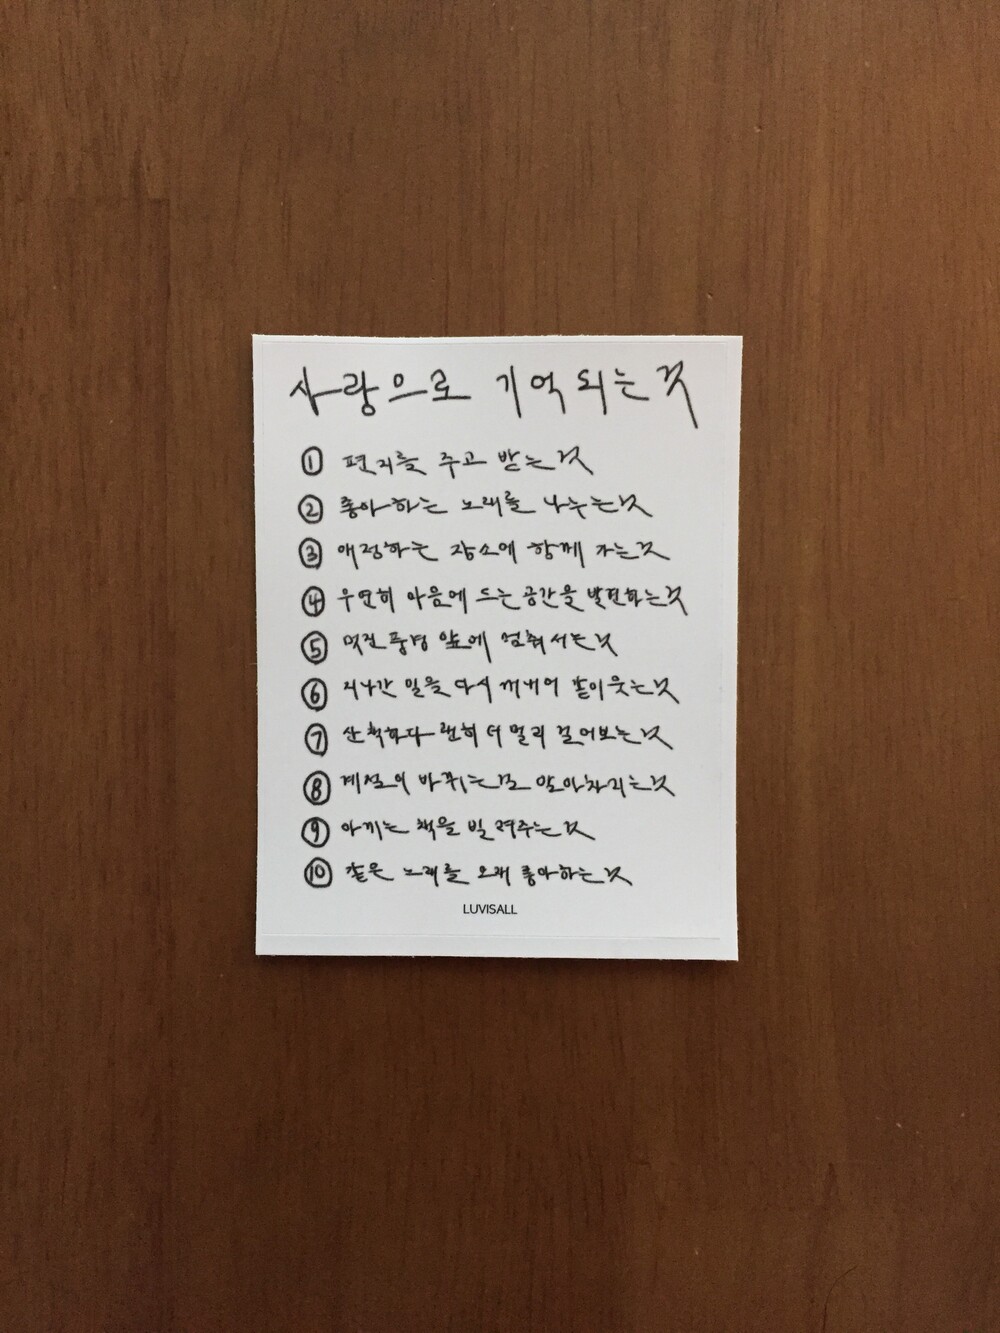 사랑으로 기억되는 것
① 편지를 주고 받는 것
② 좋아하는 노래를 나누는 것
③ 애정하는 장소에 함께 가는 것
④ 우연히 마음에 드는 공간을 발견하는 것
⑤ 멋진 풍경 앞에 멈춰 서는 것
⑥ 지나간 일을 다시 꺼내어 같이 웃는 것
⑦ 산책하다 괜히 더 멀리 걸어보는 것
⑧ 계절이 바뀌는 걸 알아차리는 것
⑨ 아끼는 책을 빌려주는 것
⑩ 같은 노래를 오래 좋아하는 것
LUVISALL